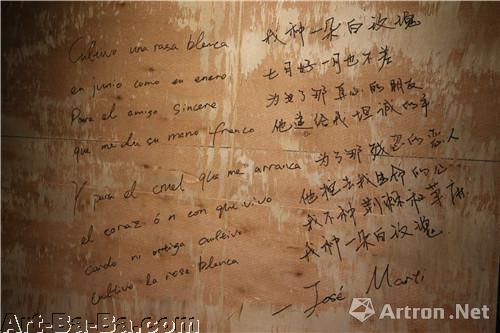 Cultivo una rosa blanca
en junio como en enero
Para el amigo sincero
que me da su mano franca
Y para el cruel que me arranca
el corazón con que vivo
cardo ni ortiga cultivo
cultivo la rosa blanca
我种一朵白玫瑰
七月好一月也不差
为了那真心的朋友
他递给我坦诚的手
为了那残忍的恶人
他抠去我生命的心
我不种荆棘和荨麻
我种一朵白玫瑰
— José Martí
Art-Ba-Ba.com
Artron.Net